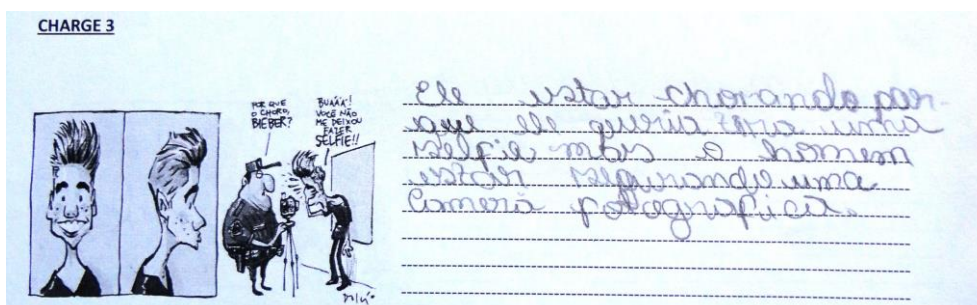 CHARGE 3
POR QUE
O CHORO,
BIEBER?
BUÁÁÁ!
VOCÊ NÃO
ME DEIXOU
FAZER
SELFIE!!
Ele estar chorando por-
que ele queria uma
selfie mas o homem
estar segurando uma
Camera fotografica.